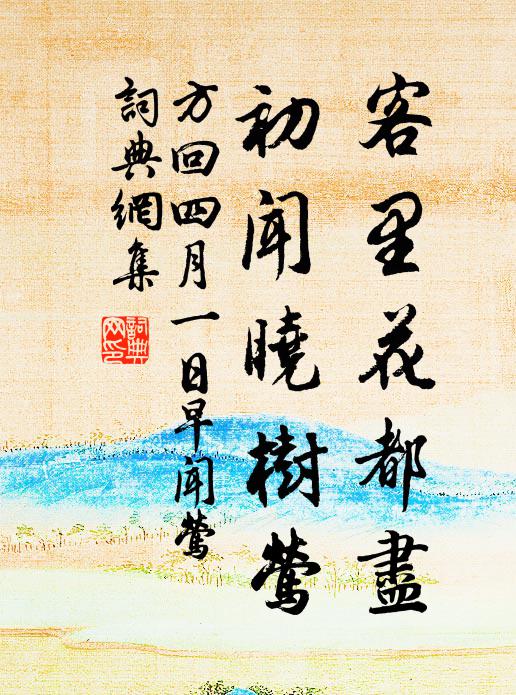 客里花都盡
初聞曉樹鶯
方回四月一日早聞鶯
詞典網集
詞典
网印